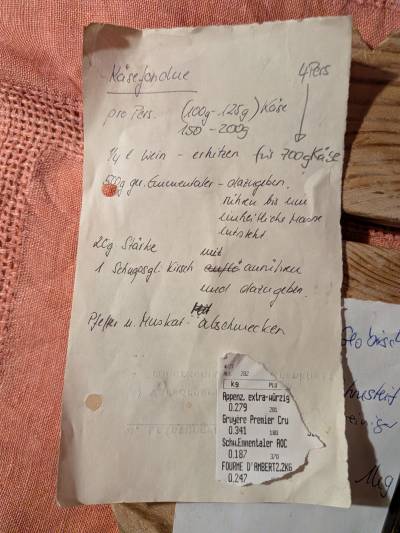 Käsefondue
4 Pers
pro Pers. (100g-125g) Käse
150-200g
1/4 l Wein - erhitzen für 700g Käse
500g ger. Emmentaler - dazugeben.
rühren bis eine
einheitliche Masse
entsteht
20g Stärke mit
1 Schnapsgl. Kirsch anrühren
und dazugeben.
Pfeffer u. Muskat abschmecken
kg PLU
Appenz. extra-würzig
0.279 201
Gruyere Premier Cru
0.341
Schw.Emmentaler AOC
0.187 370
FOURME D'AMBERT2.2KG
0.247